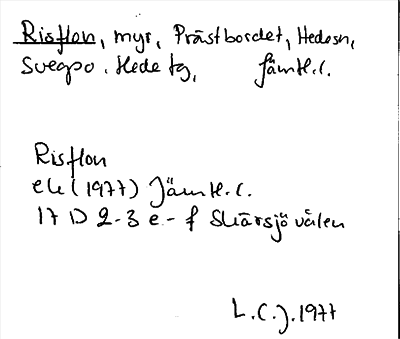 Risflon, myr, Prästbordet, Hedesn,
Svegpo. Hede tg, Jämtl.l.
Risflon
ek (1977) Jämtl.l.
17 D 2-3 e-f Skärsjövålen
L.C.J. 1977